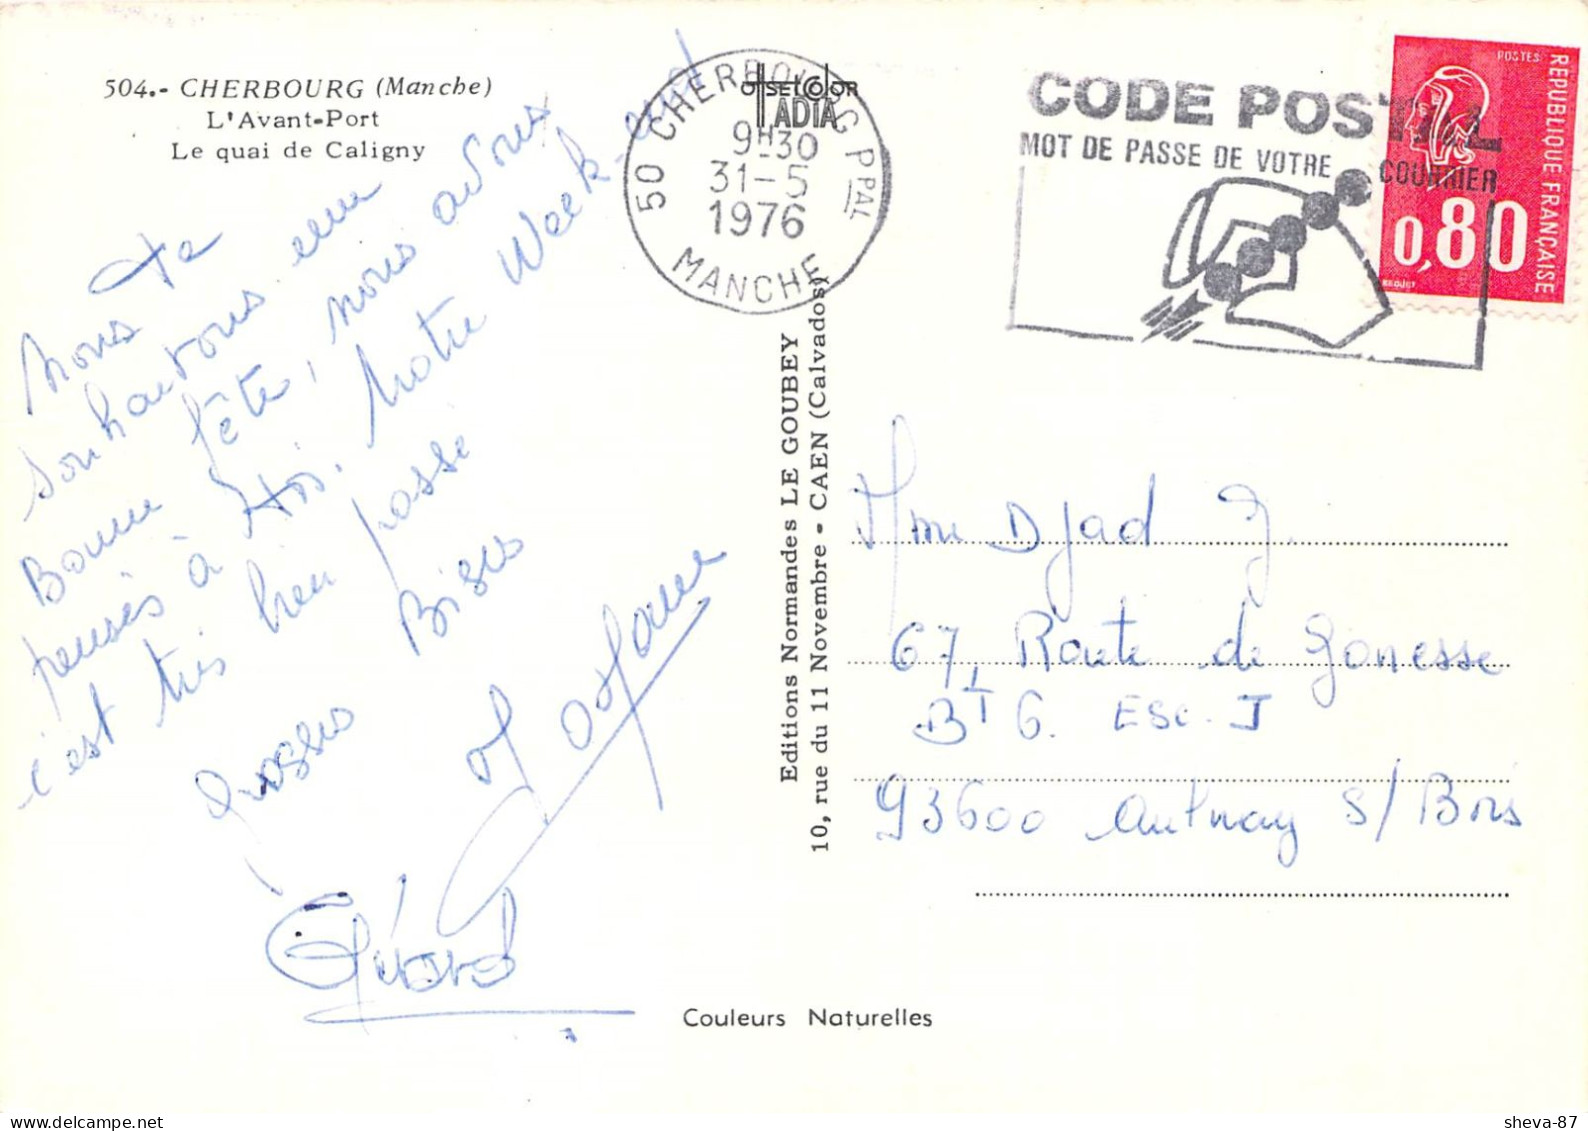 504.- CHERBOURG (Manche)
L'Avant-Port
Le quai de Caligny
Nous te
souhaitons une
Bonne fête, nous avons
pensés à toi. Notre Week-end
c'est très bien passé
Grosses Bises
Gérard
OFFSETCOLOR
IADIA
50 CHERBOURG PPAL
9H30
31-5
1976
MANCHE
CODE POSTAL
MOT DE PASSE DE VOTRE COURRIER
POSTES
REPUBLIQUE FRANÇAISE
0,80
BEQUET
Editions Normandes LE GOUBEY
10, rue du 11 Novembre - CAEN (Calvados)
Mme Djad G.
67, Route de Gonesse
BT 6. ESC. J
93600 Aulnay s/Bois
Couleurs Naturelles
sheva-87